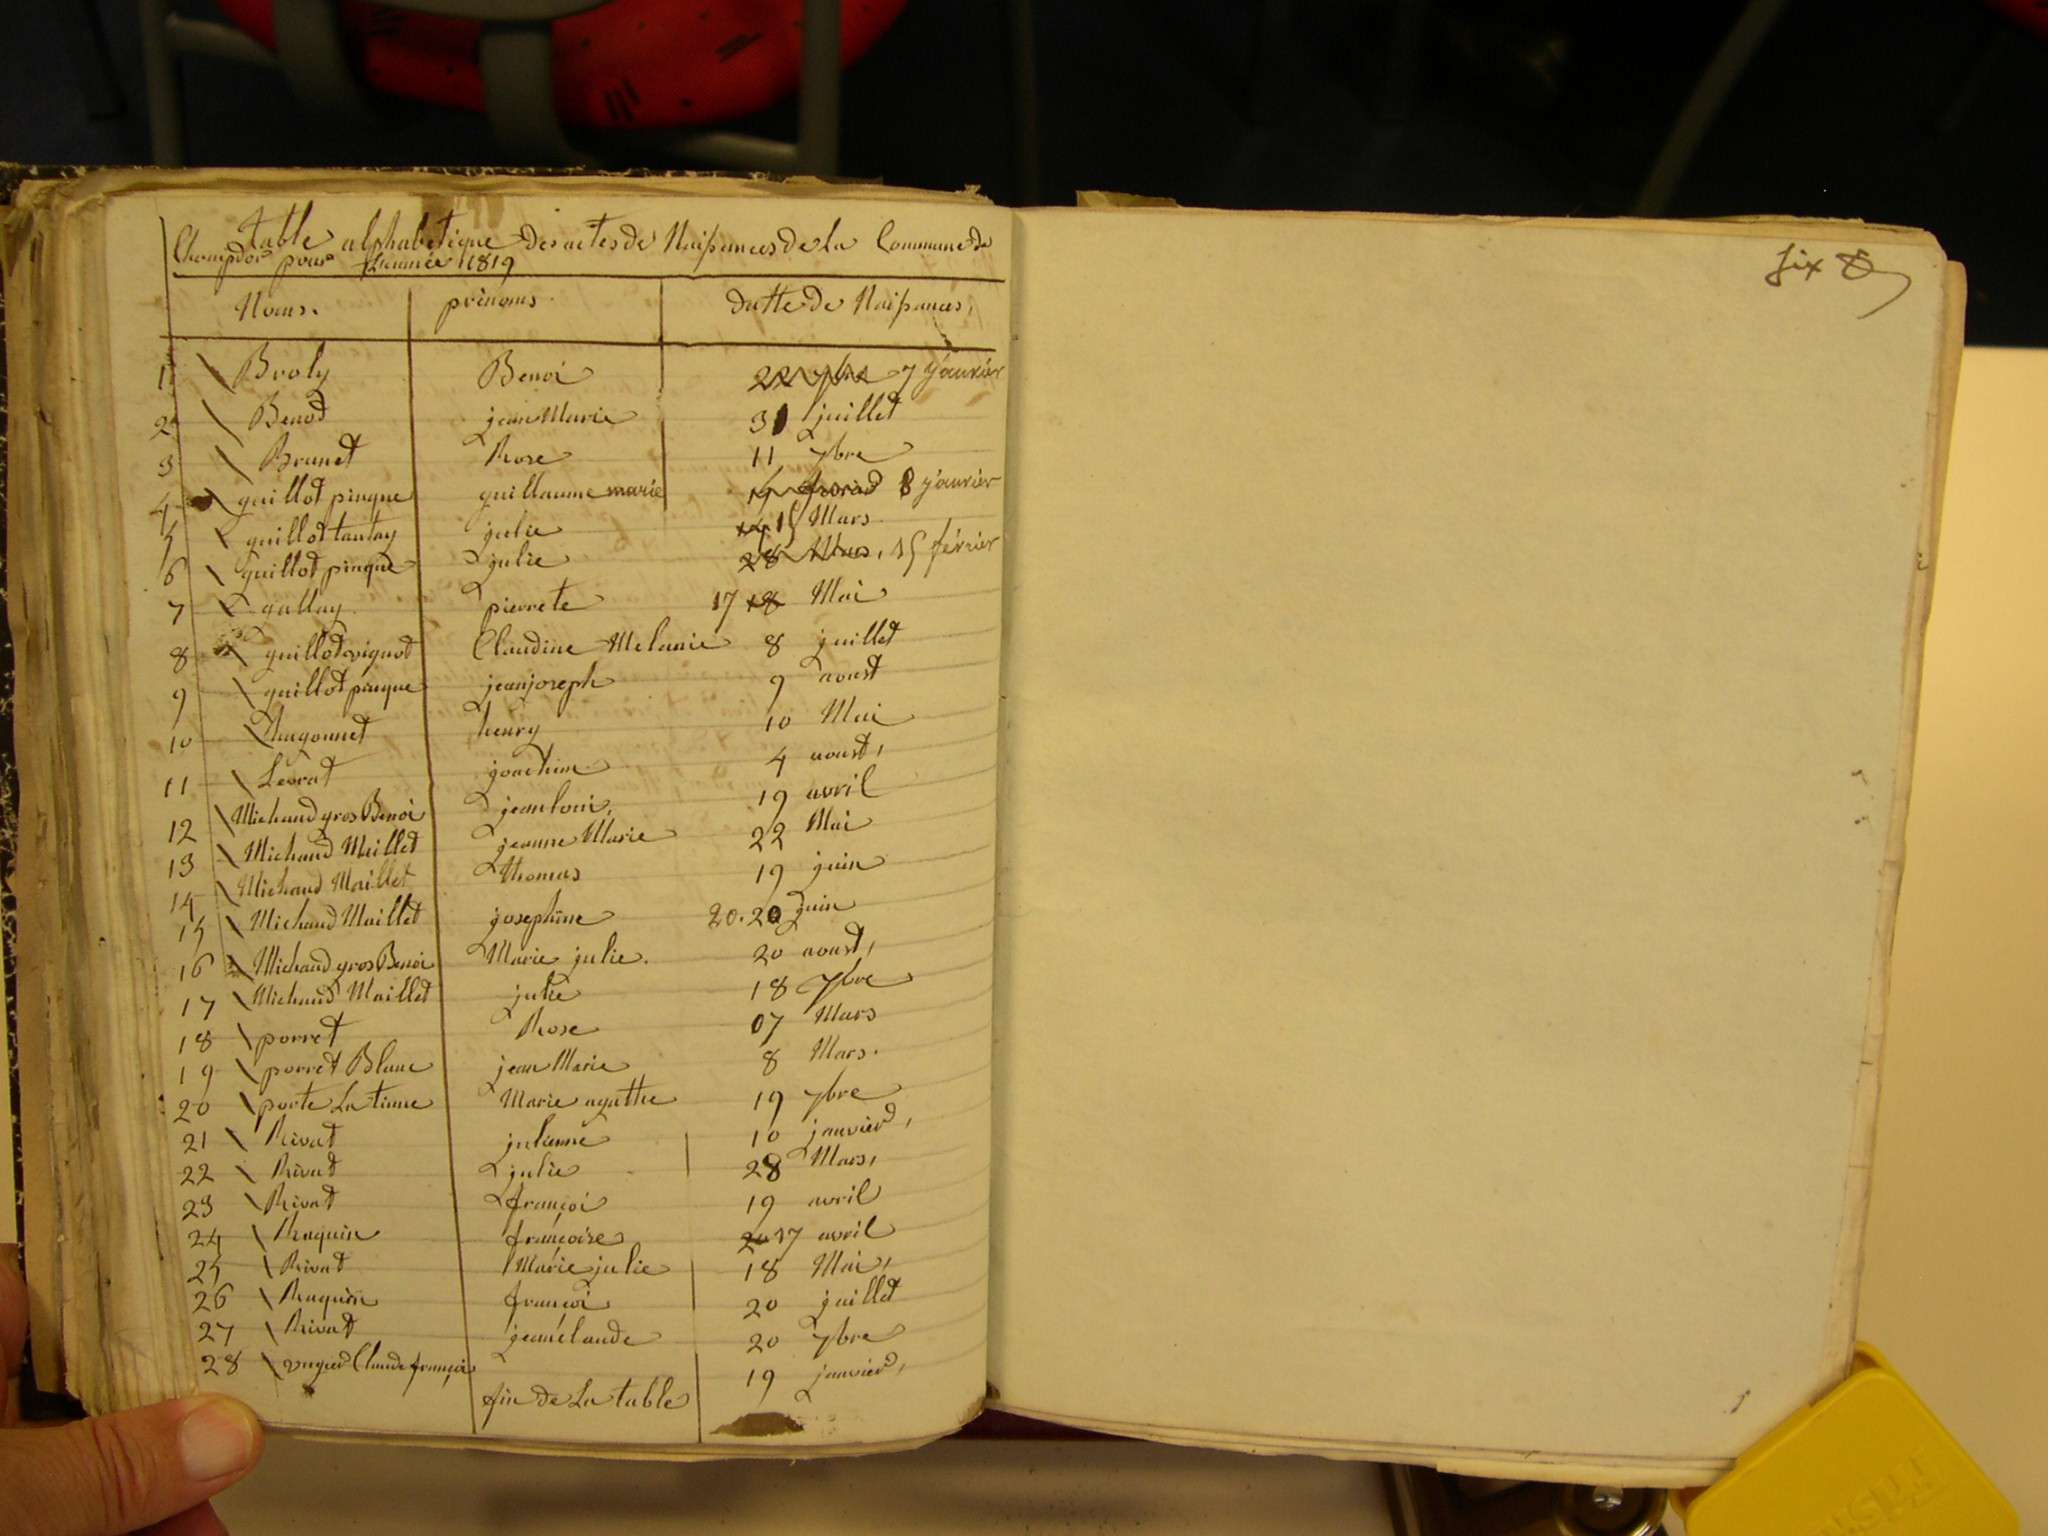 table alphabetique des actes de Naissances de La Commune de
Champdor pour L'année 1819
Noms. prénoms. datte de Naissances,
1 Broly Benoi 7 janvier
2 Benod jean Marie 31 juillet
3 Brunet Rose 11 7bre
4 guillot pinque guillaume marie 8 janvier
5 guillot tantay julie 15 Mars
6 guillot pinque julie 28 Mars, 15 février
7 gallay pierrete 17 18 Mai
8 guillot vignot Claudine Melanie 8 juillet
9 guillot pinque jean joseph 9 aoust
10 henry 10 Mai
11 Levrat joachim 4 aoust,
12 Michaud gros Benoi jean loui, 19 avril
13 Michaud Maillet jeanne Marie 22 Mai
14 Michaud Maillet thomas 19 juin
15 Michaud Maillet josephine 20. 20 juin
16 Michaud gros Benoi Marie julie. 20 aoust,
17 Michaud Maillet julie 18 7bre
18 porret Rose 07 Mars
19 porret Blanc jean Marie 8 Mars.
20 porte La tinne Marie agathe 19 7bre
21 Rivat julienne 10 janvier,
22 Rivat julie 28 Mars,
23 Rivat françoi 19 avril
24 Raquin françoise 20 17 avril
25 Rivat Marie julie 18 Mai,
26 Raquin françoi 20 juillet
27 Rivat jean claude 20 7bre
28 Claude françoi 19 janvier,
fin de La table
six 8